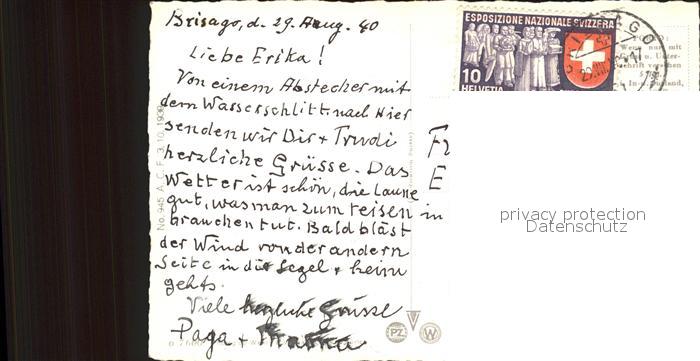 Brisago, d. 29. Aug. 40
Liebe Erika!
Von einem Abstecher mit
dem Wasserschlitt nach Hier
senden wir Dir + Trudi
herzliche Grüsse. Das
Wetter ist schön, die Laune
gut, was man zum reisen
brauchen tut. Bald bläst
der Wind von der andern
Seite in die Segel + heim
gehts.
Viele herzliche Grüsse
Papa + Mama
ESPOSIZIONE NAZIONALE SVIZZERA
10
HELVETIA
Wenn nur mit
u. Unter-
schrift versehen
No. 945 A. C. F. 3. 10. 1939
E
in
PZ
W
privacy protection
Datenschutz